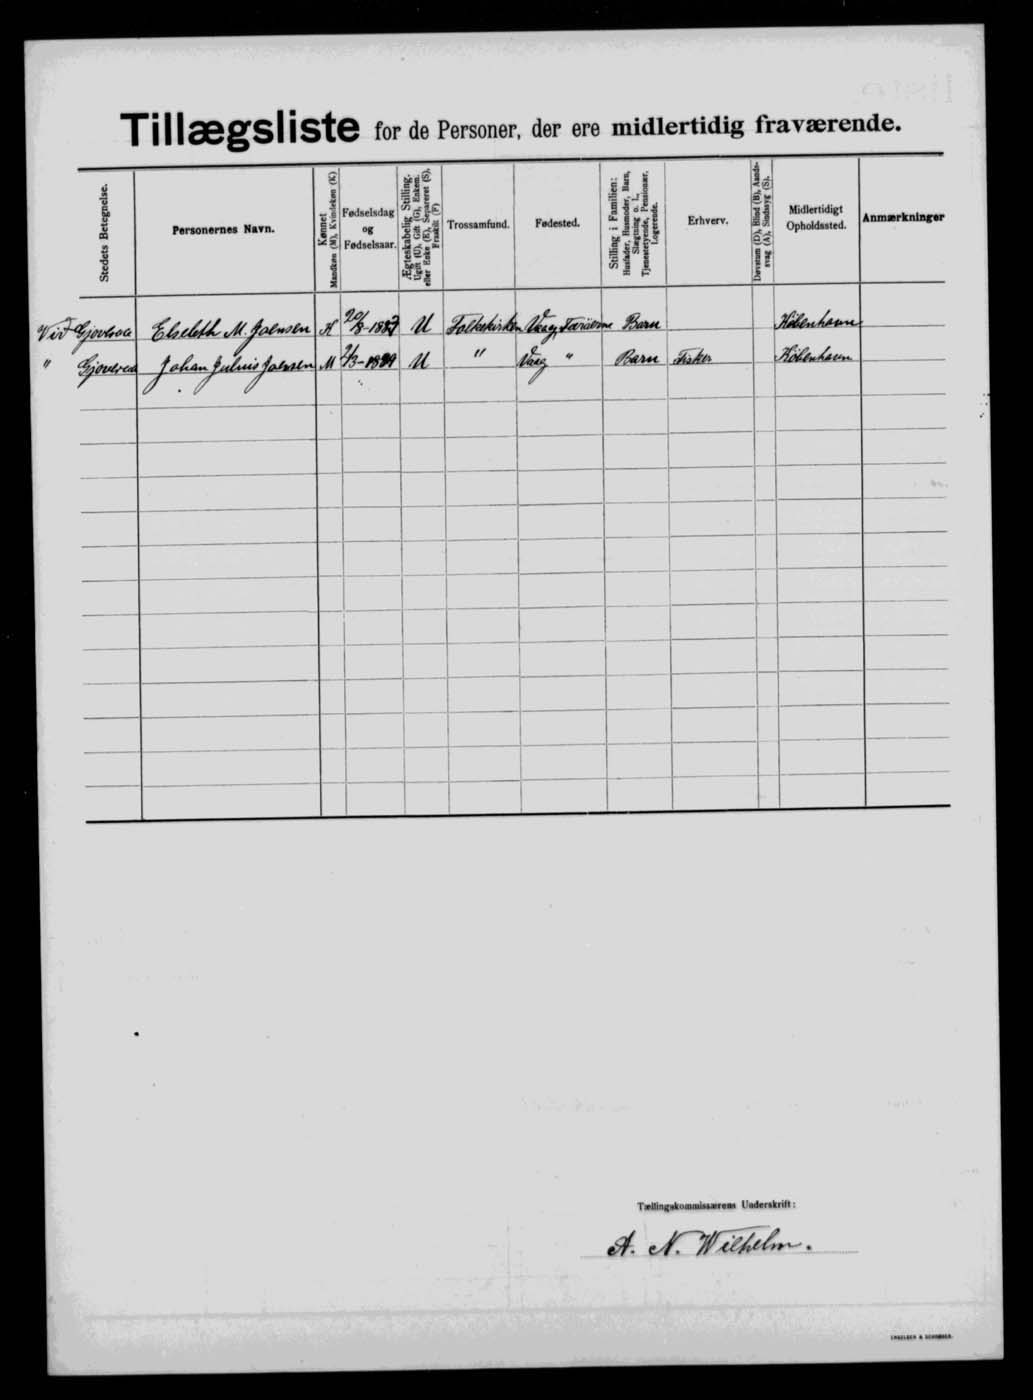 Tillægsliste for de Personer, der ere midlertidig fraværende.
Stedets Betegnelse.
Personernes Navn.
Kønnet
Mandkøn (M), Kvindekøn (K)
Fødselsdag
og
Fødselsaar.
Ægteskabelig Stilling.
Ugift (U), Gift (G), Enkem.
eller Enke (E), Separeret (S),
Fraskilt (F)
Trossamfund.
Fødested.
Stilling i Familien:
Husfader, Husmoder, Barn,
Slægtning o. l.,
Tjenestetyende, Pensionær,
Logerende.
Erhverv.
Døvstum (D), Blind (B), Aands-
svag (A), Sindssyg (S).
Midlertidigt
Opholdssted.
Anmærkninger
Elsebeth M. Joensen K 20/8-1887 U Folkekirken Vaag, Færöerne Barn København
" Johan Julius Joensen M 2/3-1889 U " Vaag " Barn Fisker København
Tællingskommissærens Underskrift:
A. N. Wilhelm.
ENGELSEN & SCHRØDER.